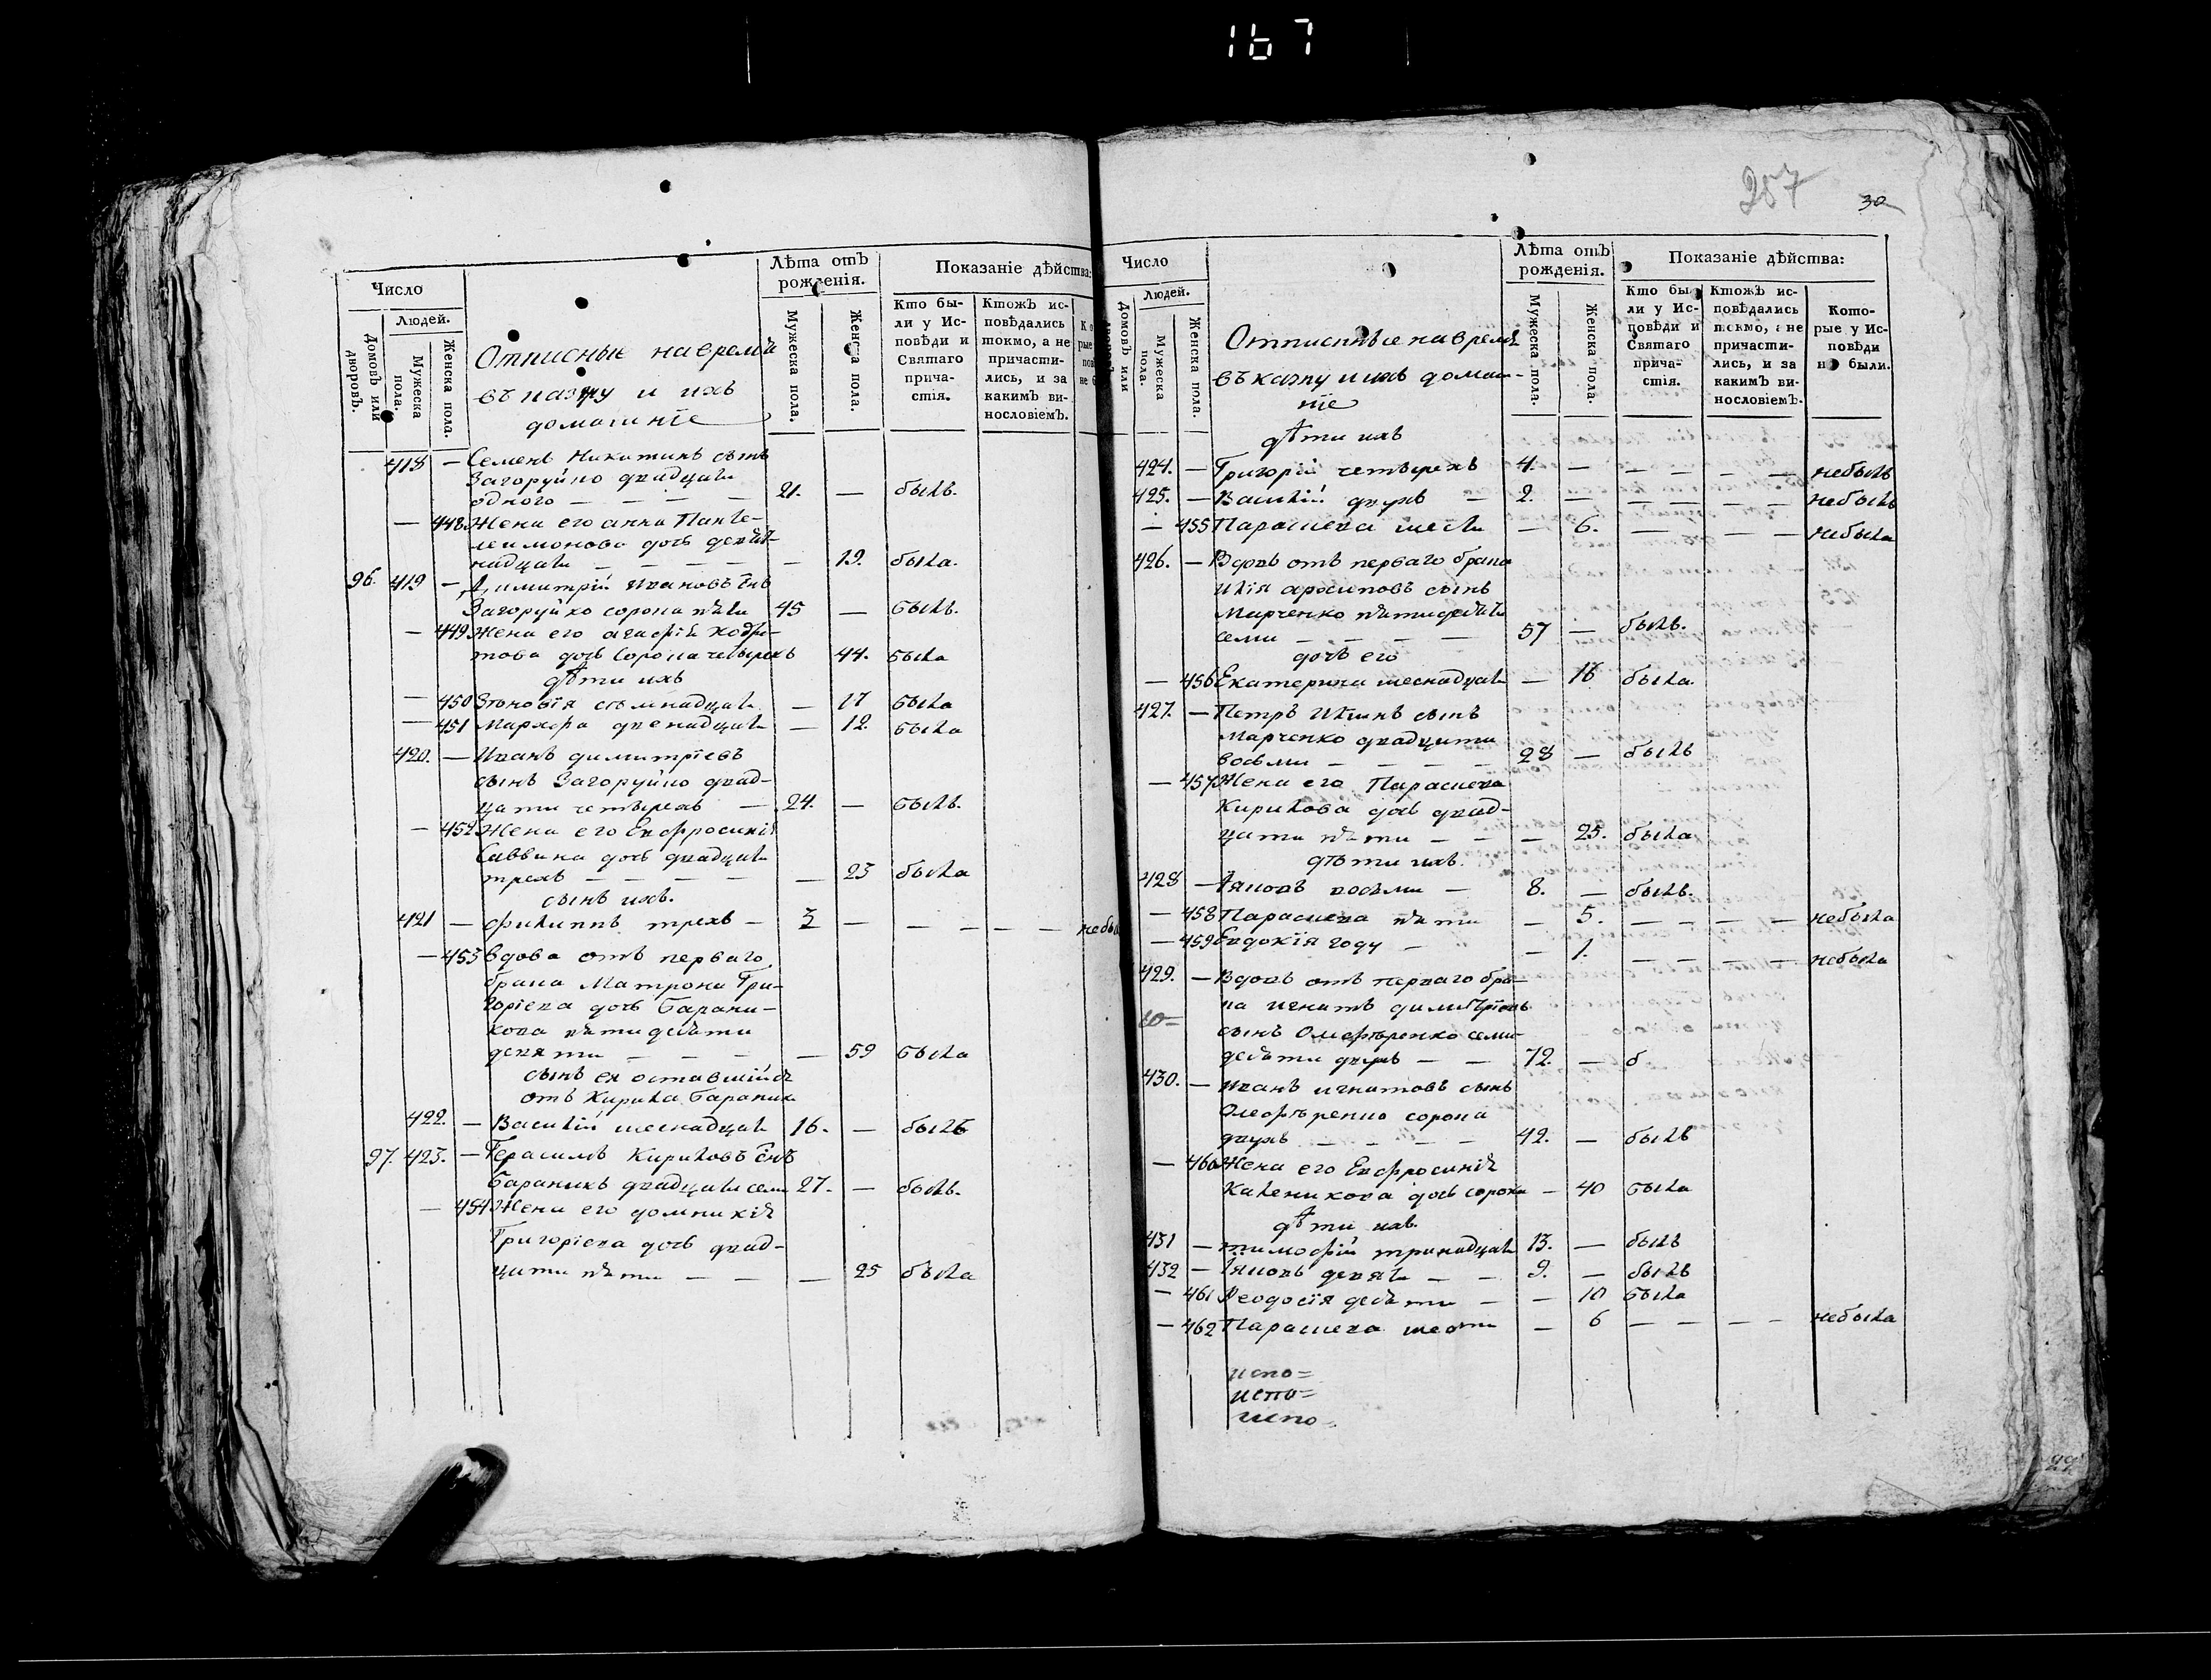 167
257
30
Число
Людей.
Домовъ или дворовъ.
Мужеска пола.
Женска пола.
Отписные на время
въ казну и ихъ
домашніе
Лѣта отъ рожденія.
Мужеска пола.
Женска пола.
Показаніе дѣйства:
Кто были у Исповѣди и Святаго причастія.
Ктожъ исповѣдались токмо, а не причастились, и за какимъ винословіемъ.
418 — Семенъ Никитинъ сынъ
Загоруйко двадцати
одного — — — — 21. — былъ.
— 448 Жена его Анна Панте-
леимонова дочь девят-
надцати — — — — 19. была.
96. 419 — Димитрій Ивановъ снъ
Загоруйко сорока пяти 45 — былъ.
— 449 Жена его Агафія Кодра-
това дочь сорока четырехъ 44. была
дѣти ихъ
— 450 Зѣновія сѣмнадцати — 17 была
— 451 Марфа двенадцати — 12. была
420. — Иванъ Димитріевъ
сынъ Загоруйко двад-
цати четырехъ — 24. — былъ.
— 452 Жена его Евфросинія
Саввина дочь двадцати
трехъ — — — — 23 была
сынъ ихъ.
421 — Филиппъ трехъ — 3 — — — — — небы
— 453 Вдова отъ перваго
брака Матрона Гри-
горіева дочь Барани-
кова пятидесяти
девяти — — — — 59 была
сынъ ея оставшійся
отъ Кирила Бараника
422. — Василій шеснадцати 16. — былъ
97. 423. — Герасимъ Кириловъ снъ
Бараникъ двадцати семи 27. — былъ.
— 454 Жена его Домникія
Григоріева дочь двад-
цати пяти — — — 25 была
Число
Людей.
Домовъ или дворовъ.
Мужеска пола.
Женска пола.
Отписныые на время
въ казну и ихъ домаш-
ніе
Лѣта отъ рожденія.
Мужеска пола.
Женска пола.
Показаніе дѣйства:
Кто были у Исповѣди и Святаго причастія.
Ктожъ исповѣдались токмо, а не причастились, и за какимъ винословіемъ.
Которые у Исповѣди не были.
дѣти ихъ
424. — Григорій четырехъ 4. — — — — — небылъ
425. — Василій двухъ — 2. — — — — — небылъ
— 455 Параскева шести — 6. — — — небыла
426. — Вдовъ отъ перваго брака
Илія Архиповъ сынъ
Марченко пятидесяти
семи — — — — 57 — былъ.
дочь его
— 456 Екатерина шеснадцати — 16 была.
427. — Петръ Иліинъ сынъ
Марченко двадцати
восьми — — — — 28 — былъ
— 457 Жена его Параскева
Кирилова дочь двад-
цати пяти — — — 25. была
дѣти ихъ.
428 — Іяковъ восьми — 8. — былъ.
— 458 Параскева пяти — 5. — — — — небыла
— 459 Евдокія году — — 1. — — — — небыла
429. — Вдовъ отъ перваго бра-
ка Игнатъ Димитріевъ
сынъ Олеференко семи-
десяти двухъ — — 72. — б
430. — Иванъ Игнатовъ сынъ
Олеференко сорока
двухъ — — — — 42. — былъ
— 460 Жена его Евфросинія
Каленикова дочь сорока — 40 была
дѣти ихъ.
431 — Тимофій тринадцати 13. — былъ
432 — Іяковъ девяти — — 9. — былъ
— 461 Феодосія десяти — — 10 была
— 462 Параскева шести — 6 — — — — небыла
испо=
испо=
испо